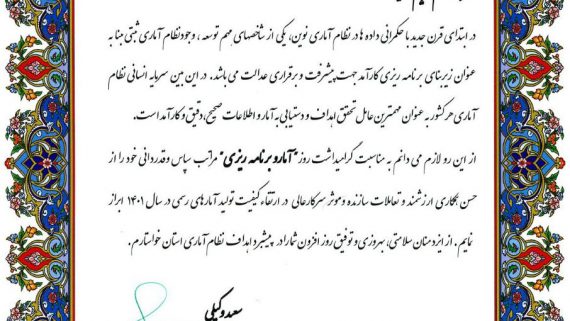 در ابتدای قرن جدید با حکمرانی داده ها در نظام آماری نوین، یکی از شاخصهای مهم توسعه ، وجود نظام آماری ثبتی مبنا به
عنوان زیربنای برنامه ریزی کارآمد جهت پیشرفت و برقراری عدالت می باشد. در این بین سرمایه انسانی نظام
آماری هر کشور به عنوان مهمترین عامل تحقق اهداف و دستیابی به آمار و اطلاعات صحیح، دقیق و کارآمد است.
از این رو لازم می دانم به مناسبت گرامیداشت روز "آمار و برنامه ریزی" مراتب سپاس و قدردانی خود را از
حسن همکاری ارزشمند و تعاملات سازنده و موثر سرکارعالی در ارتقاء کیفیت تولید آمارهای رسمی در سال ۱۴۰۱ ابراز
نمایم . از ایزد منان سلامتی، بهروزی و توفیق روز افزون شما را در پیشبرد اهداف نظام آماری استان خواستارم .
سعید وکیلی